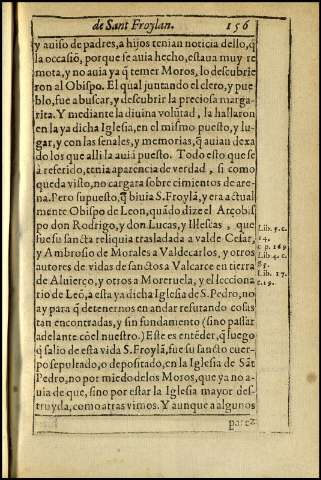 de Sant Froylan. 156
y auiso de padres, a hijos tenian noticia dello, q̃
la occasiõ, porque se auia hecho, estaua muy re
mota, y no auia ya q̃ temer Moros, lo descubrie
ron al Obispo. El qual juntando el clero, y pue
blo, fue a buscar, y descubrir la preciosa marga-
rita. Y mediante la diuina volũtad, la hallaron
en la ya dicha Iglesia, en el mismo puesto, y lu-
gar, y con las señales, y memorias, q̃ auian dexa
do los que alli la auiã puesto. Todo esto que se
à referido, tenia aparencia de verdad, si como
queda visto, no cargara sobre cimientos de are-
na. Pero supuesto, q̃ biuia S. Froylã, y era actual
mente Obispo de Leon, quãdo dize el Arçobis
po don Rodrigo, y don Lucas, y Illescas, que
fue su sancta reliquia trasladada a valde Cesar,
y Ambrosio de Morales a Valdecarlos, y otros
autores de vidas de sanctos a Valcarce en tierra
de Aluierço, y otros a Moreruela, y el lecciona
rio de Leõ, a esta ya dicha Iglesia de S. Pedro, no
ay para q̃ detenernos en andar refutando cosas
tan encontradas, y sin fundamento (sino passar
adelante cõ el nuestro.) Este es entẽder, q̃ luego
q̃ salio de esta vida S. Froylã, fue su sancto cuer-
po sepultado, o depositado, en la Iglesia de Sãt
Pedro, no por miedo delos Moros, que ya no a-
uia de que, sino por estar la Iglesia mayor des-
truyda, como atras vimos. Y aunque a algunos
parez
Lib. 5. c.
14.
c p. 169.
Lib 4. c.
85.
Lib. 17.
c. 19.